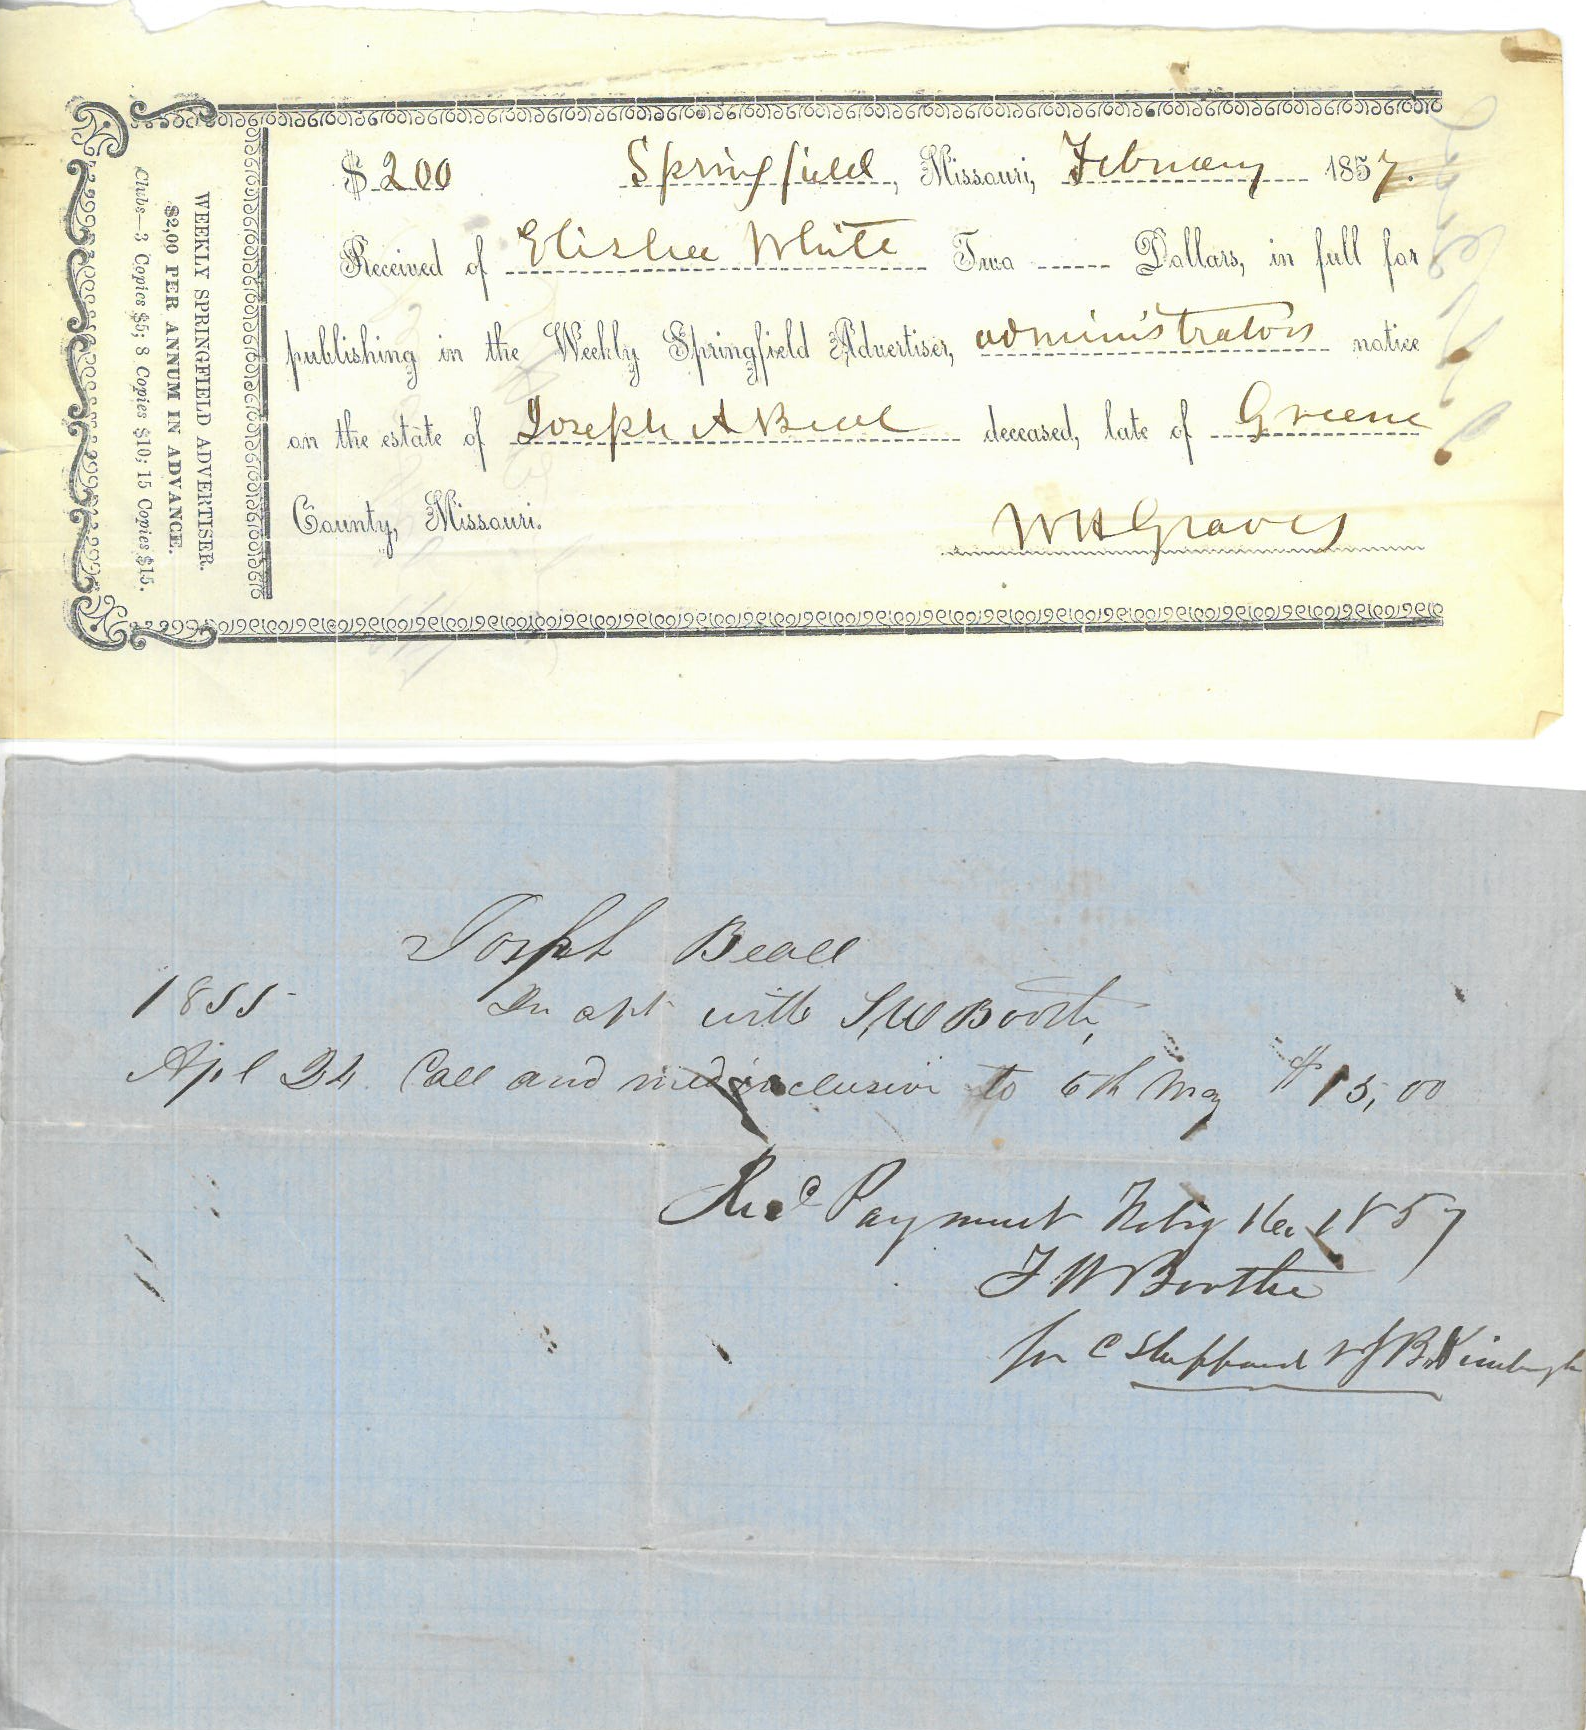 WEEKLY SPRINGFIELD ADVERTISER.
$2,00 PER ANNUM IN ADVANCE.
Clubs—3 Copies $5; 8 Copies $10; 15 Copies $15.
$ 200 Springfield, Missouri, February 1857.
Received of Elisha White Two Dollars, in full for
publishing in the Weekly Springfield Advertiser, administrators notice
on the estate of Joseph A Beal deceased, late of Greene
County, Missouri.
W H Graves
Joseph Beall
1855 In apt with J W Booth,
Apl 24 Call and med inclusive to 6th May $15,00
Recd Payment Feby 16 1857
J W Boothe
for C Sheppard & J B Kimbrgh